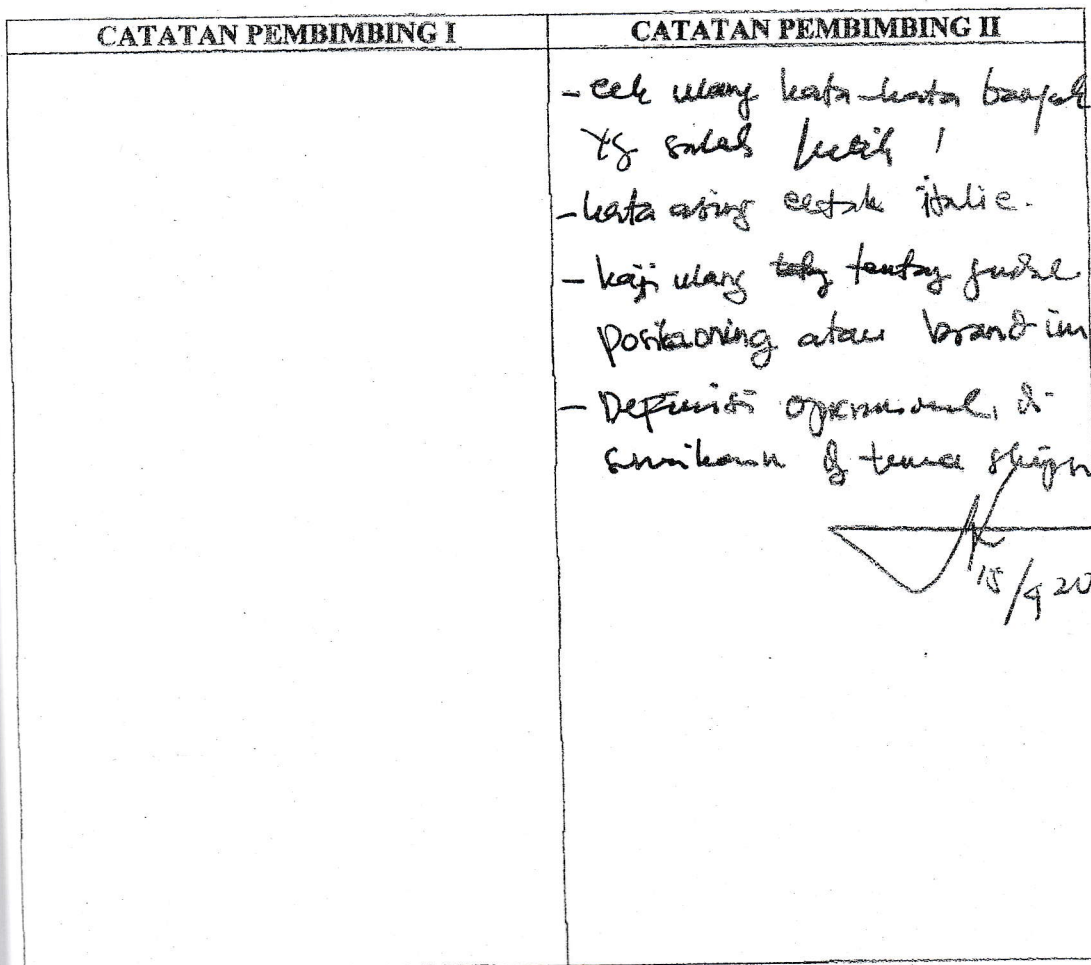 CATATAN PEMBIMBING I
CATATAN PEMBIMBING II
- cek ulang kata-kata banyak
yg salah ketik !
- kata asing cetak italic.
- kaji ulang tentang judul
positioning atau brand im
- Definisi operasional, di
sesuaikan dg tema skripsi
15/4 20